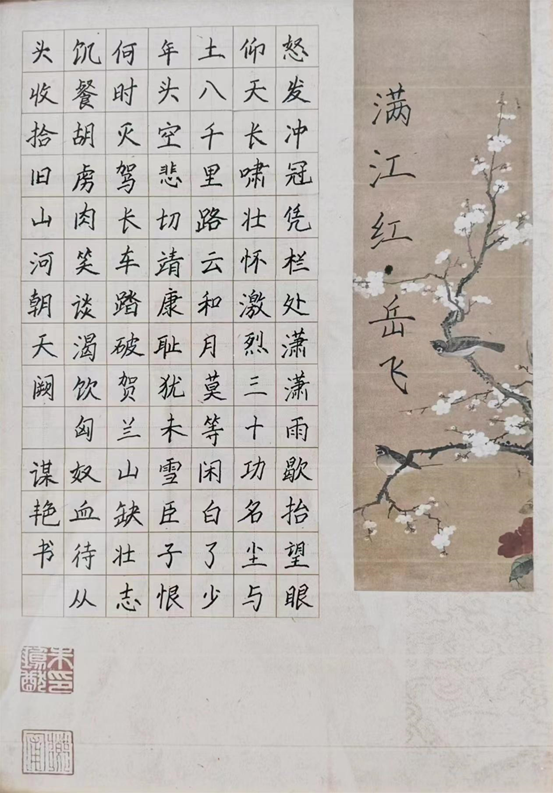 满江红·岳飞
怒发冲冠凭栏处潇潇雨歇抬望眼
仰天长啸壮怀激烈三十功名尘与
土八千里路云和月莫等闲白了少
年头空悲切靖康耻犹未雪臣子恨
何时灭驾长车踏破贺兰山缺壮志
饥餐胡虏肉笑谈渴饮匈奴血待从
头收拾旧山河朝天阙 谋艳书